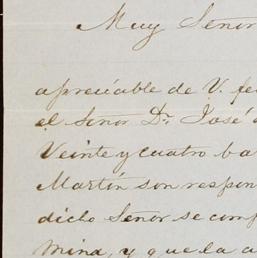 Muy Señor
apreciable de V. fe
el Señor Dr. José
Veinte y cuatro ba
Martín son respon
dicho Señor se comp
mina, y que la a